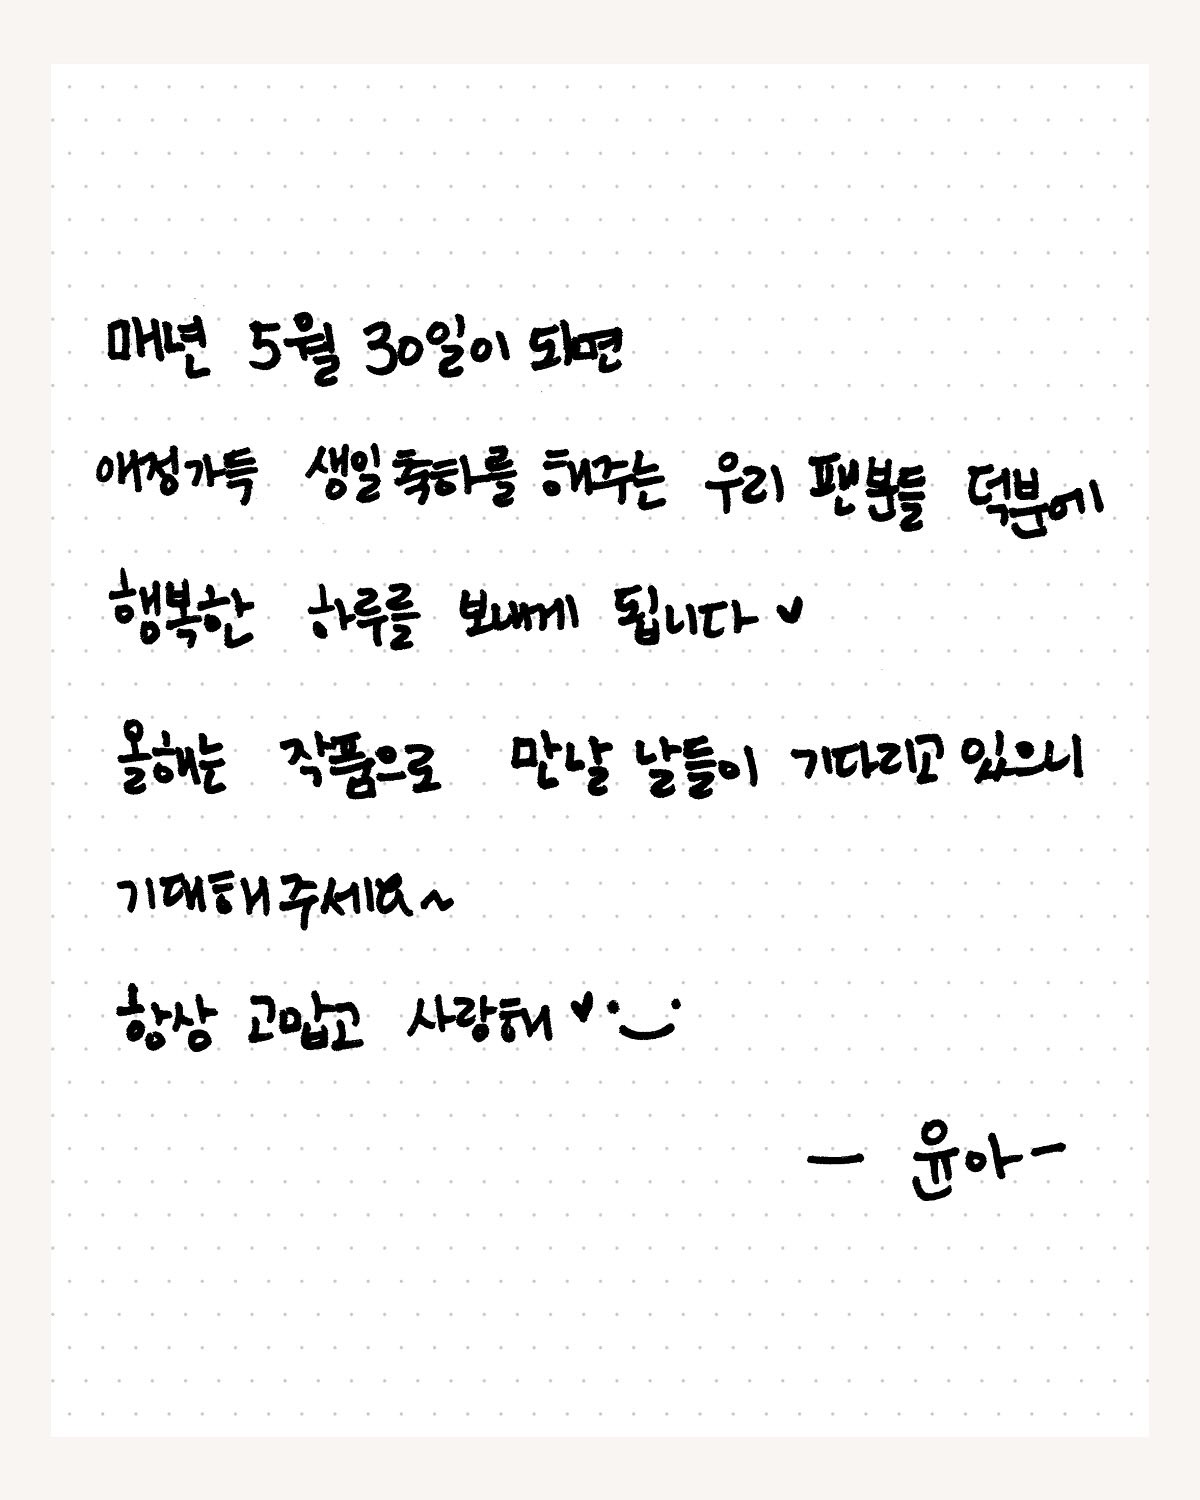 매년 5월 30일이 되면
애정가득 생일축하를 해주는 우리 팬분들 덕분에
행복한 하루를 보내게 됩니다 ♥
올해는 작품으로 만날 날들이 기다리고 있으니
기대해주세요~
항상 고맙고 사랑해 ♥
— 윤아 —